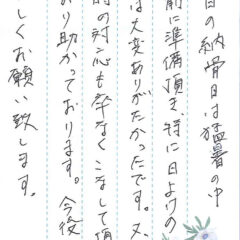 日の納骨日は猛暑の中
前に準備頂き、特に日よけの
は大変ありがたかったです。又、
時の対応も卒なくこなして頂
おり助かっております。今後
しくお願い致します。